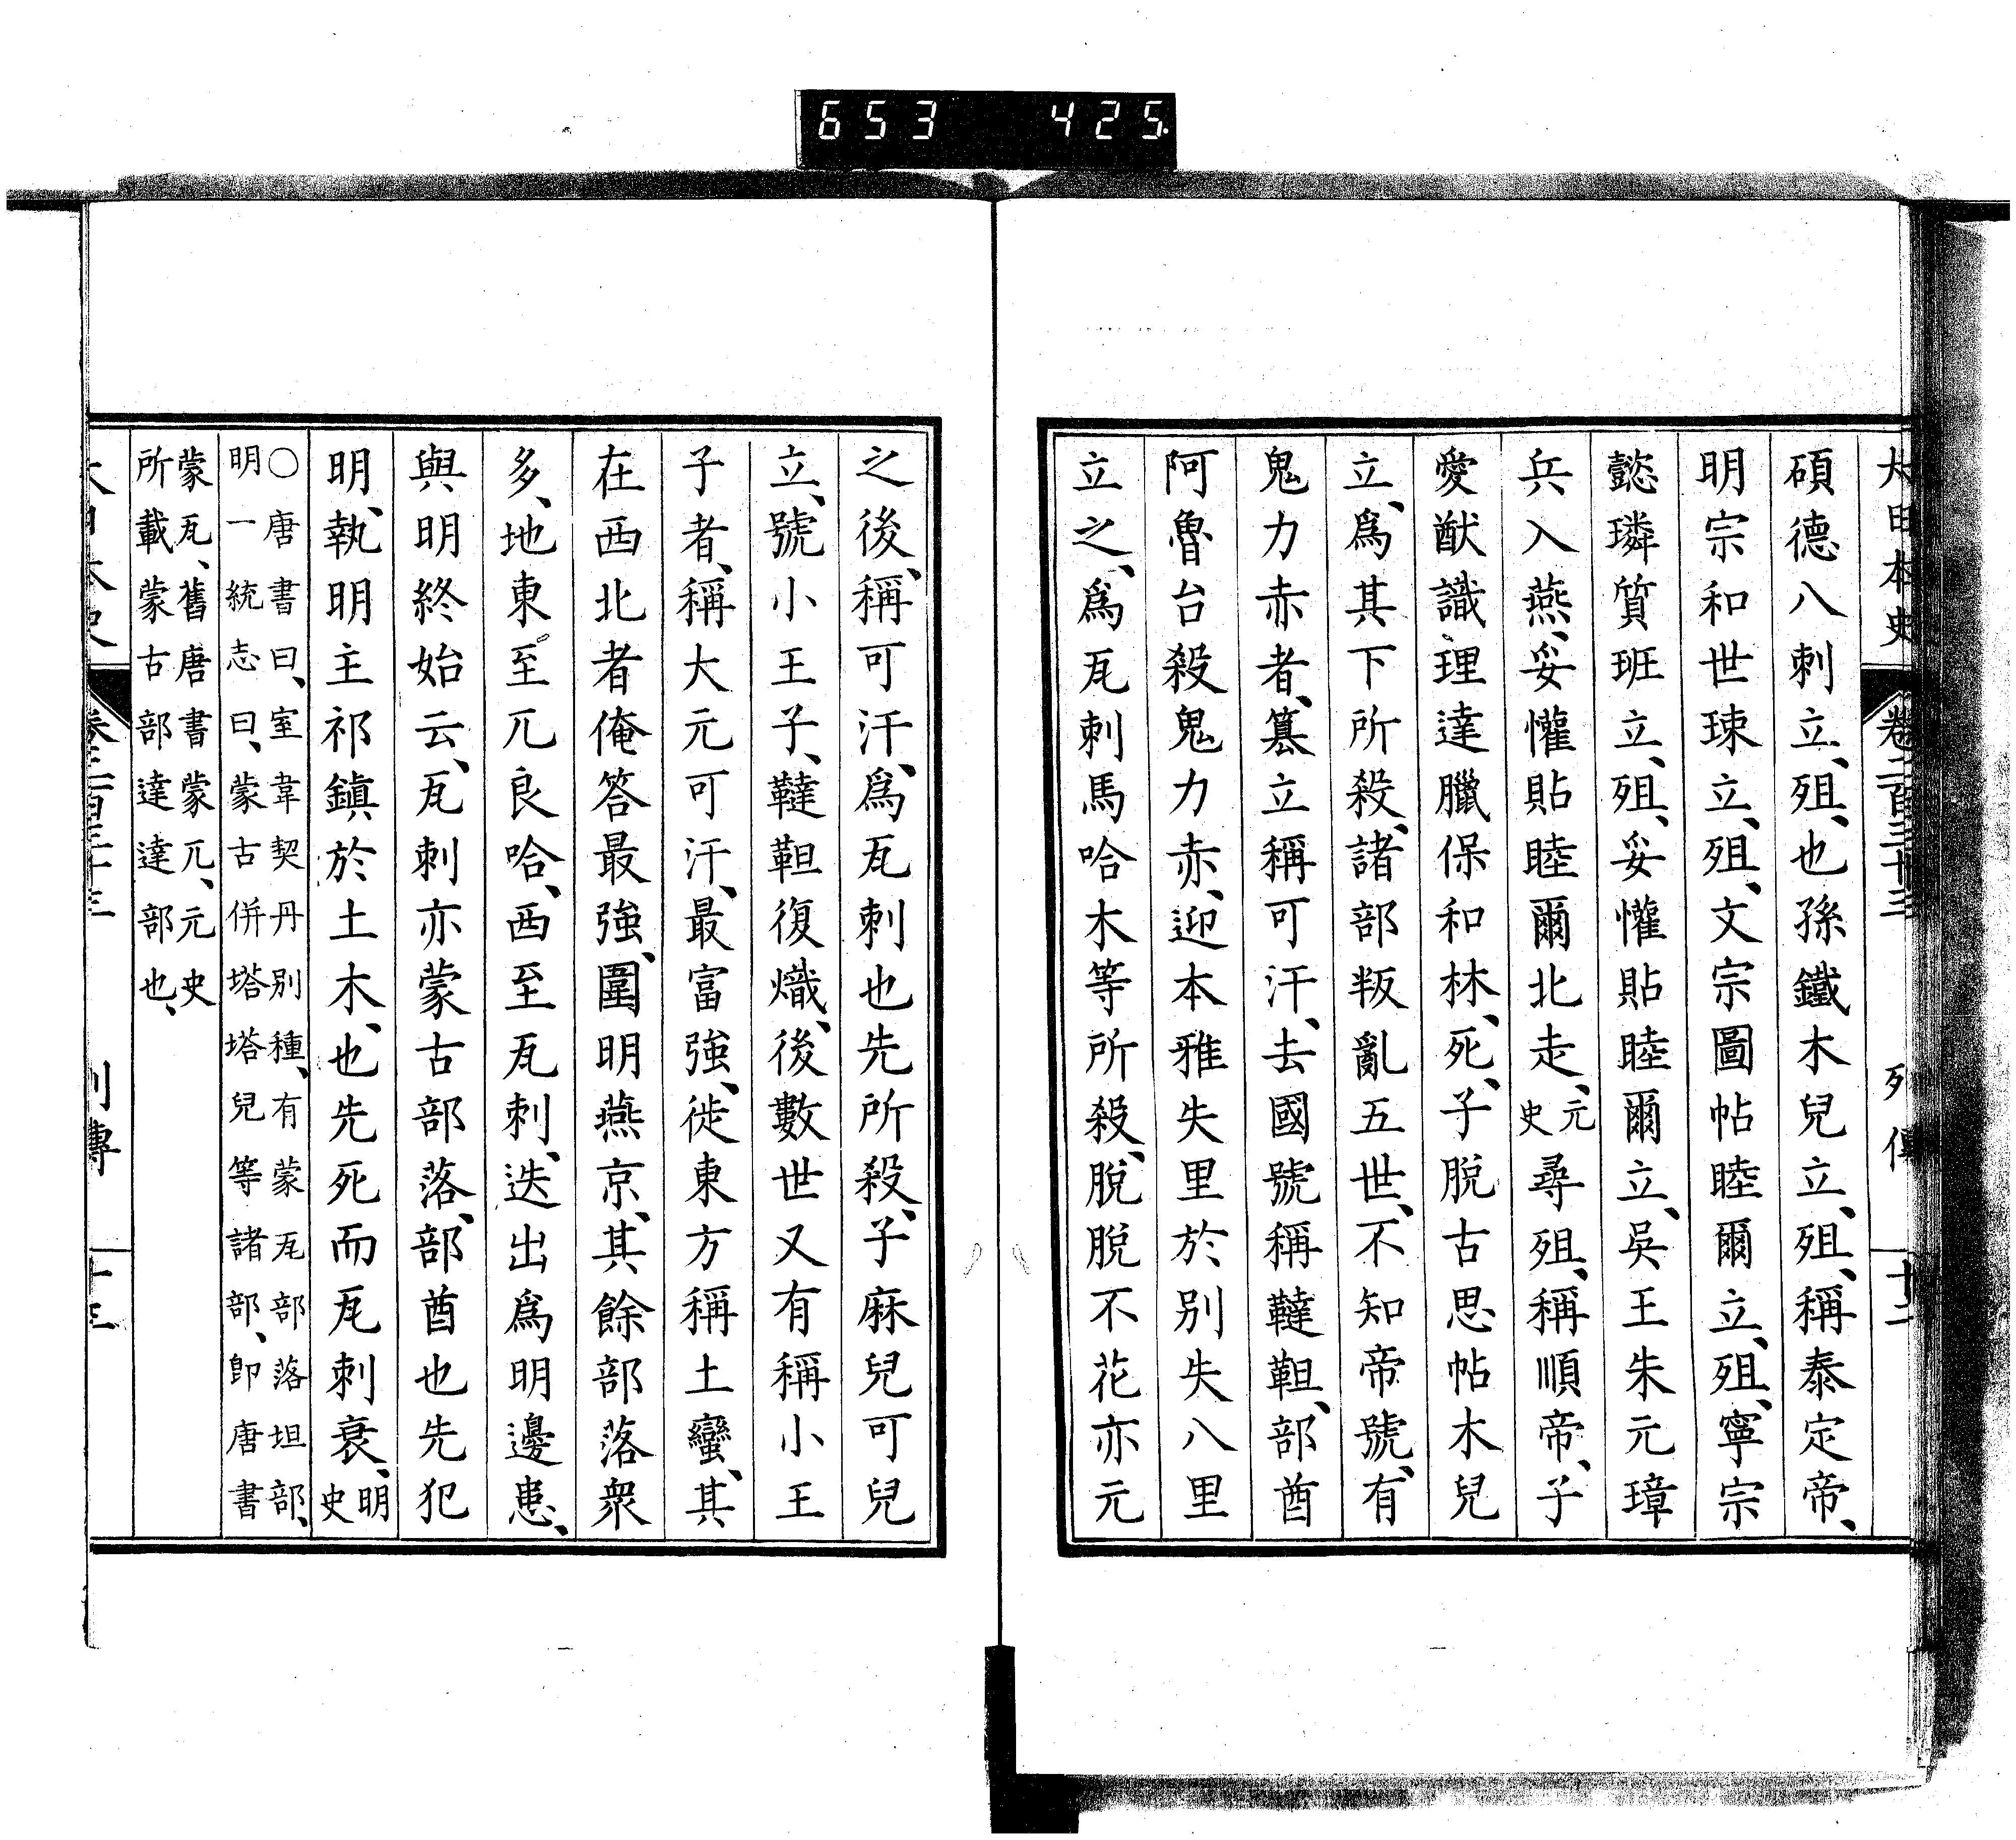 653 425
大日本史 卷二百三十三 列傳 十二
碩德八剌立、殂、也孫鐵木兒立、殂、稱泰定帝、
明宗和世㻋立、殂、文宗圖帖睦爾立、殂、寧宗
懿璘質班立、殂、妥懽貼睦爾立、吳王朱元璋
兵入燕、妥懽貼睦爾北走、元史尋殂、稱順帝、子
愛猷識理達臘保和林、死、子脫古思帖木兒
立、爲其下所殺、諸部叛亂五世、不知帝號、有
鬼力赤者、簒立稱可汗、去國號稱韃靼、部酋
阿魯台殺鬼力赤、迎本雅失里於別失八里
立之、爲瓦剌馬哈木等所殺、脫脫不花亦元
之後、稱可汗、爲瓦剌也先所殺、子麻兒可兒
立、號小王子、韃靼復熾、後數世又有稱小王
子者、稱大元可汗、最富強、徙東方稱土蠻、其
在西北者俺答最強、圍明燕京、其餘部落衆
多、地東至兀良哈、西至瓦剌、迭出爲明邊患、
與明終始云、瓦剌亦蒙古部落、部酋也先犯
明、執明主祁鎭於土木、也先死而瓦剌衰、明史
〇唐書曰、室韋契丹別種、有蒙瓦部落坦部、
明一統志曰、蒙古併塔塔兒等諸部、卽唐書
蒙瓦、舊唐書蒙兀、元史
所載蒙古部達達部也、
大日本史 卷二百三十三 列傳 十三